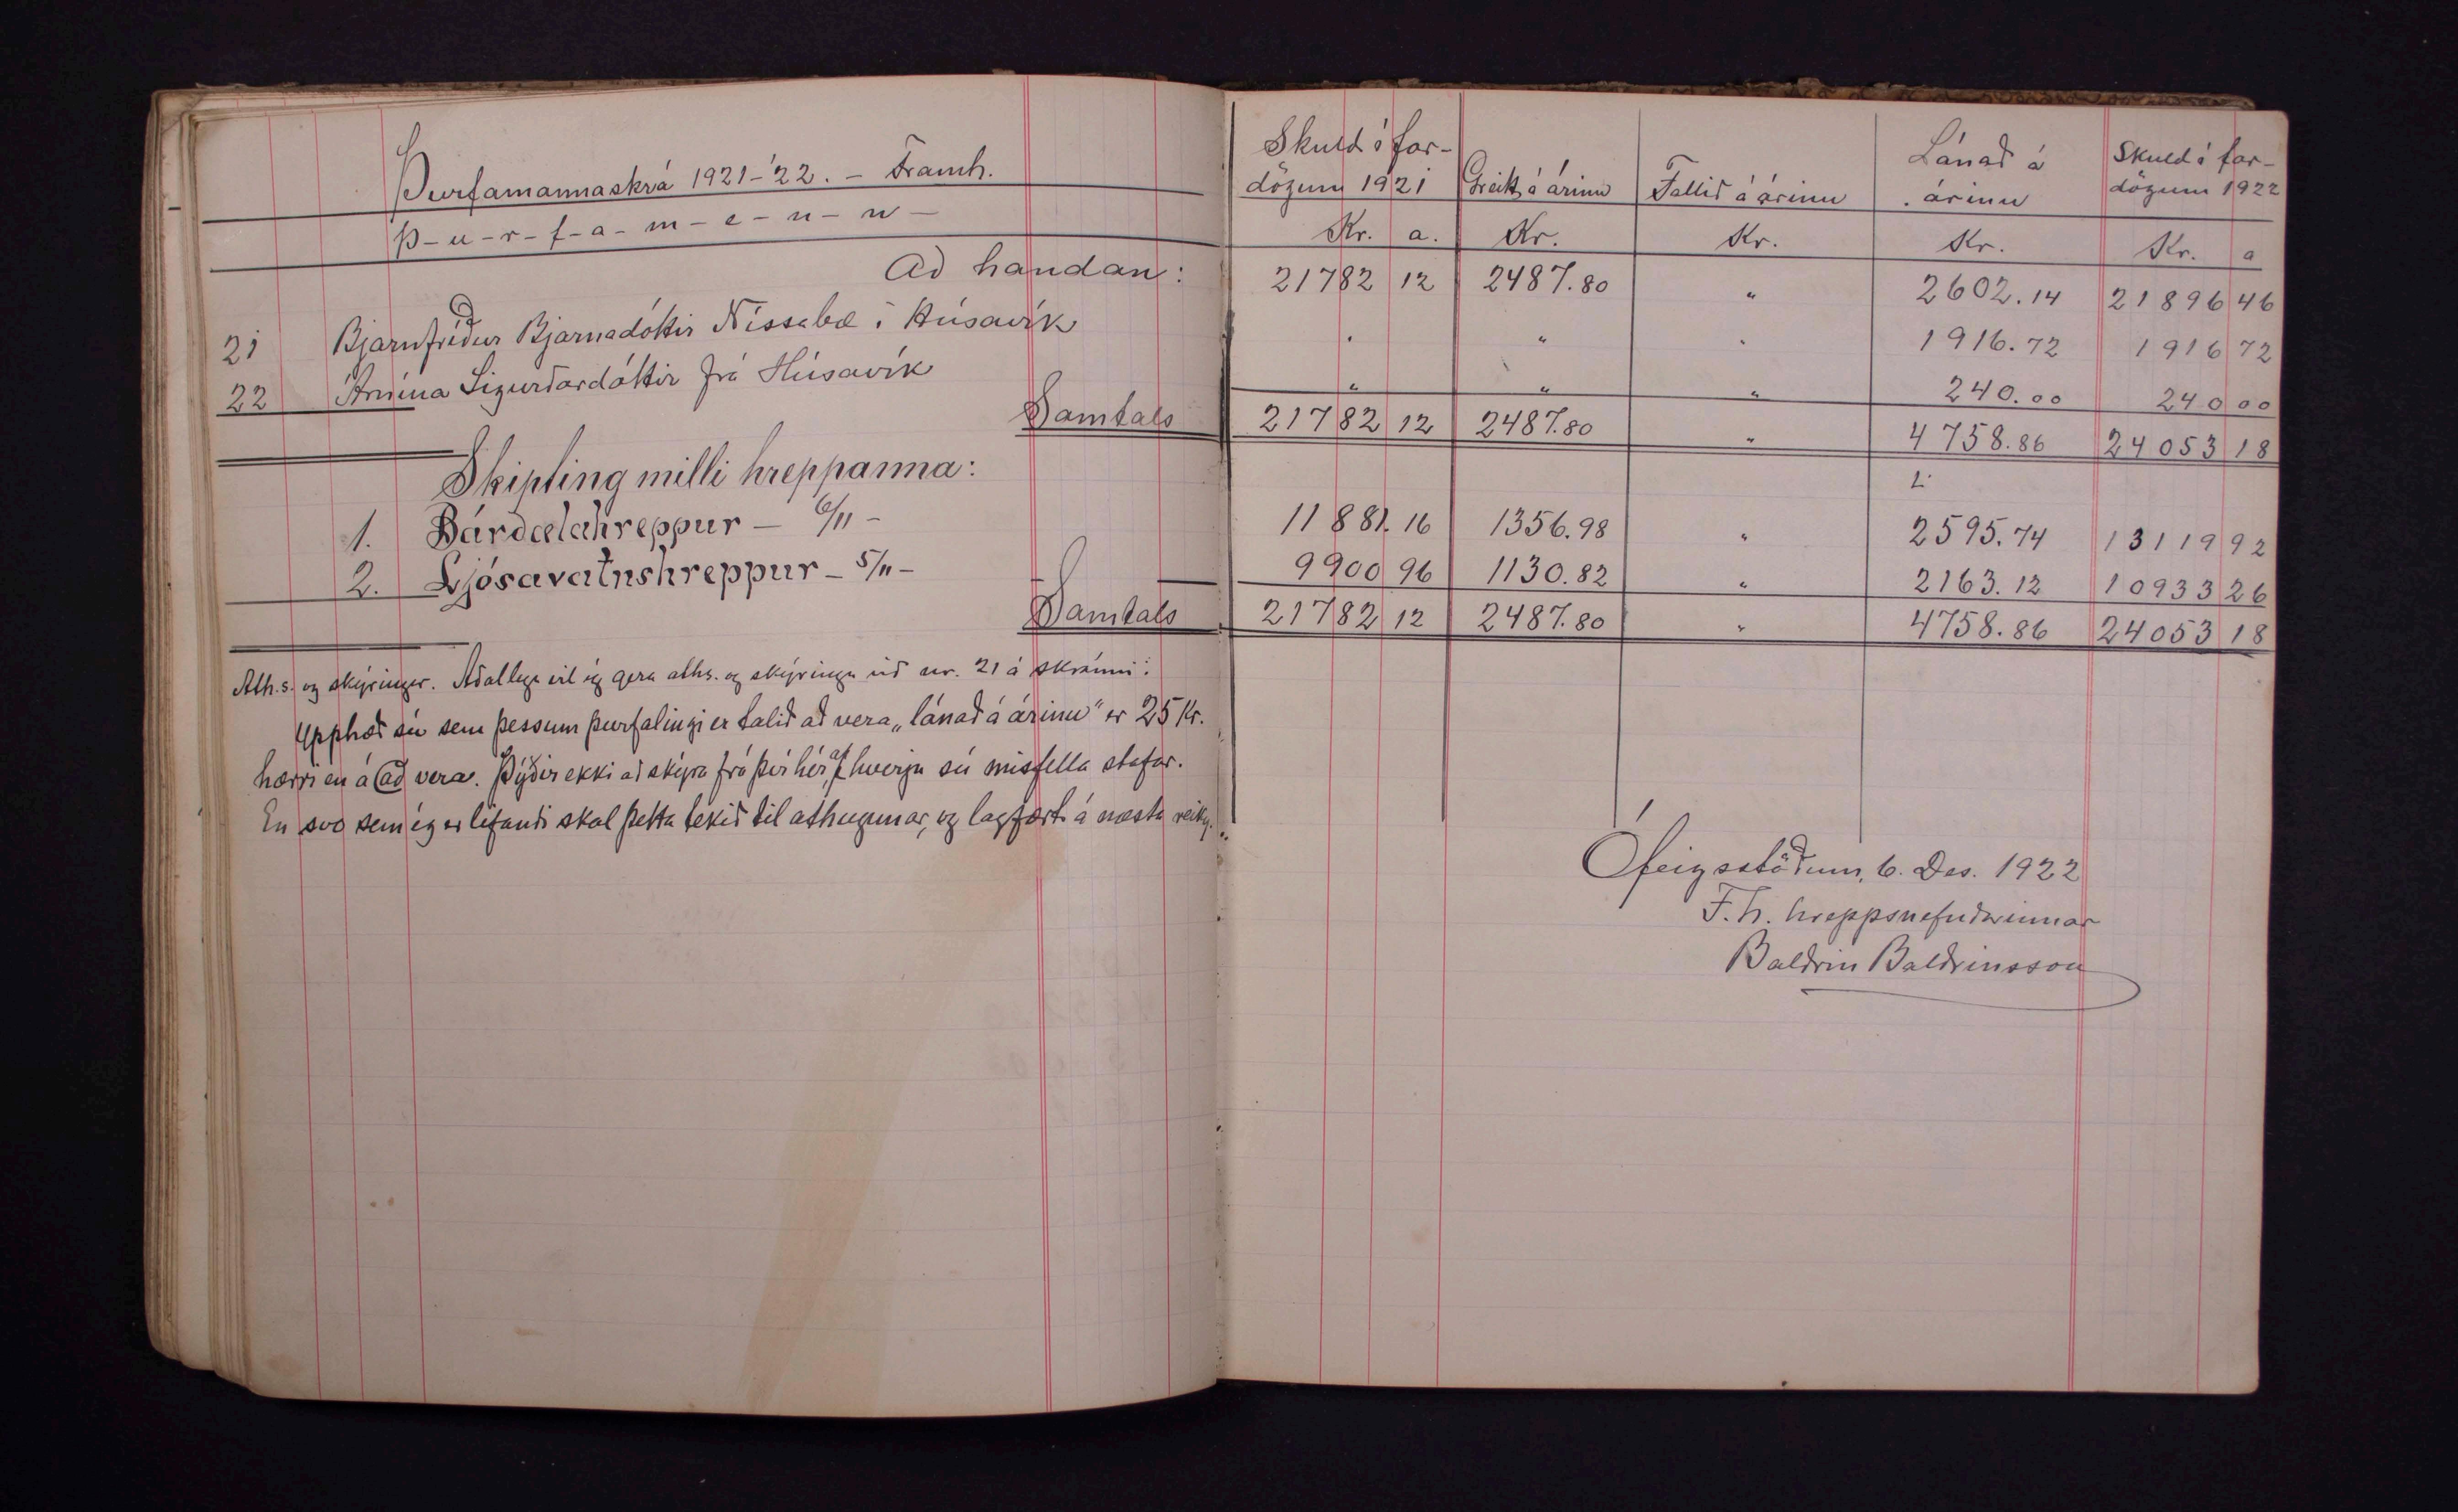 Þurfamannaskrá 1921-'22. - Framh.
Þ-u-r-f-a-m-e-n-n-
Að handan:
21 Bjarnfríður Bjarnadóttir Nissabæ í Húsavík
22 Anína Sigurðardóttir frá Húsavík
Samtals
Skipting milli hreppanna:
1. Bárdælahreppur - 6/11 -
2. Ljósavatnshreppur - 5/11 -
Samtals
Ath.s. og skýringar. Aðallega vil ég gera aths. og skýringu við nr. 21 á skránni:
Upphæð sú sem þessum þurfalingi er talið að vera „lánað á árinu" er 25 Kr.
hærri en á að vera. Þýðir ekki að skýra frá því hér, af hverju sú misfella stafar.
En svo sem ég er lifandi skal þetta tekið til athugunar, og lagfært á næsta reikn.
Skuld í far- Lánað á Skuld í far-
dögum 1921 Greitt á árinu Fallið á árinu árinu dögum 1922
Kr. a. Kr. Kr. Kr. Kr. a
21782 12 2487.80 " 2602.14 21896 46
" " " 1916.72 1916 72
" " " 240.00 240 00
21782 12 2487.80 " 4758.86 24053 18
11881.16 1356.98 " 2595.74 13119 92
9900 96 1130.82 " 2163.12 10933 26
21782 12 2487.80 " 4758.86 24053 18
Ófeigsstöðum, 6. Des. 1922
F.h. hreppsnefndarinnar
Baldvin Baldvinsson